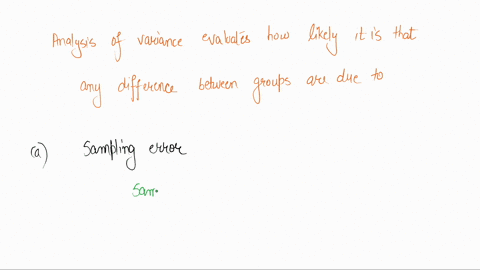 Analysis of variance evabates how likely it is that
any difference between groups are due to
(a) Sampling error
Sam